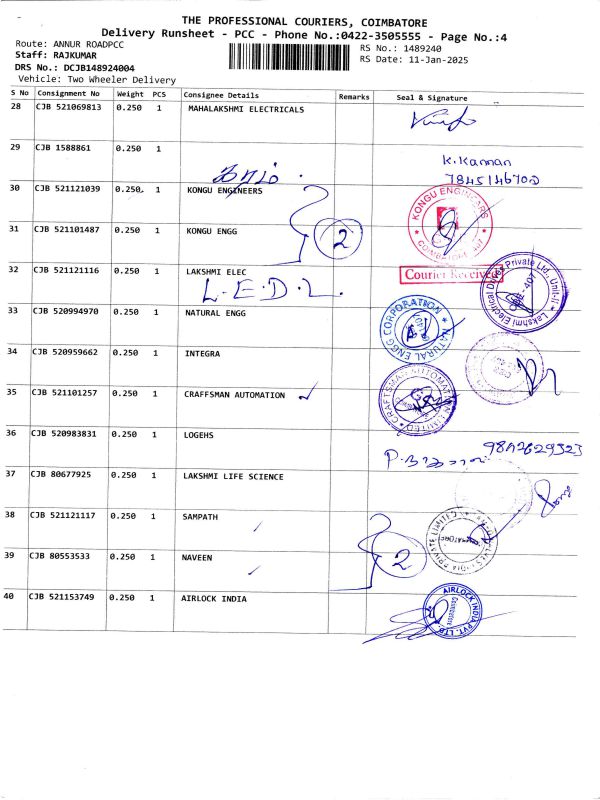 THE PROFESSIONAL COURIERS, COIMBATORE
Delivery Runsheet - PCC - Phone No.:0422-3505555 - Page No.:4
Route: ANNUR ROADPCC
RS No.: 1489240
Staff: RAJKUMAR
RS Date: 11-Jan-2025
DRS No.: DCJB148924004
Vehicle: Two Wheeler Delivery
S No Consignment No Weight PCS Consignee Details Remarks Seal & Signature
28 CJB 521069813 0.250 1 MAHALAKSHMI ELECTRICALS
29 CJB 1588861 0.250 1
K.Kannan
30 CJB 521121039 0.250 1 KONGU ENGINEERS
KONGU ENGINEERS
31 CJB 521101487 0.250 1 KONGU ENGG
2
32 CJB 521121116 0.250 1 LAKSHMI ELEC
Courier Received
L.E.D.L.
Lakshmi Electrical Drives Private Ltd., Unit-II
33 CJB 520994970 0.250 1 NATURAL ENGG
NATURAL ENGG CORPORATION
34 CJB 520959662 0.250 1 INTEGRA
35 CJB 521101257 0.250 1 CRAFFSMAN AUTOMATION
CRAFTSMAN AUTOMATION LIMITED
36 CJB 520983831 0.250 1 LOGEHS
9842629523
37 CJB 80677925 0.250 1 LAKSHMI LIFE SCIENCE
38 CJB 521121117 0.250 1 SAMPATH
39 CJB 80553533 0.250 1 NAVEEN
2
40 CJB 521153749 0.250 1 AIRLOCK INDIA
AIRLOCK INDIA PVT. LTD.